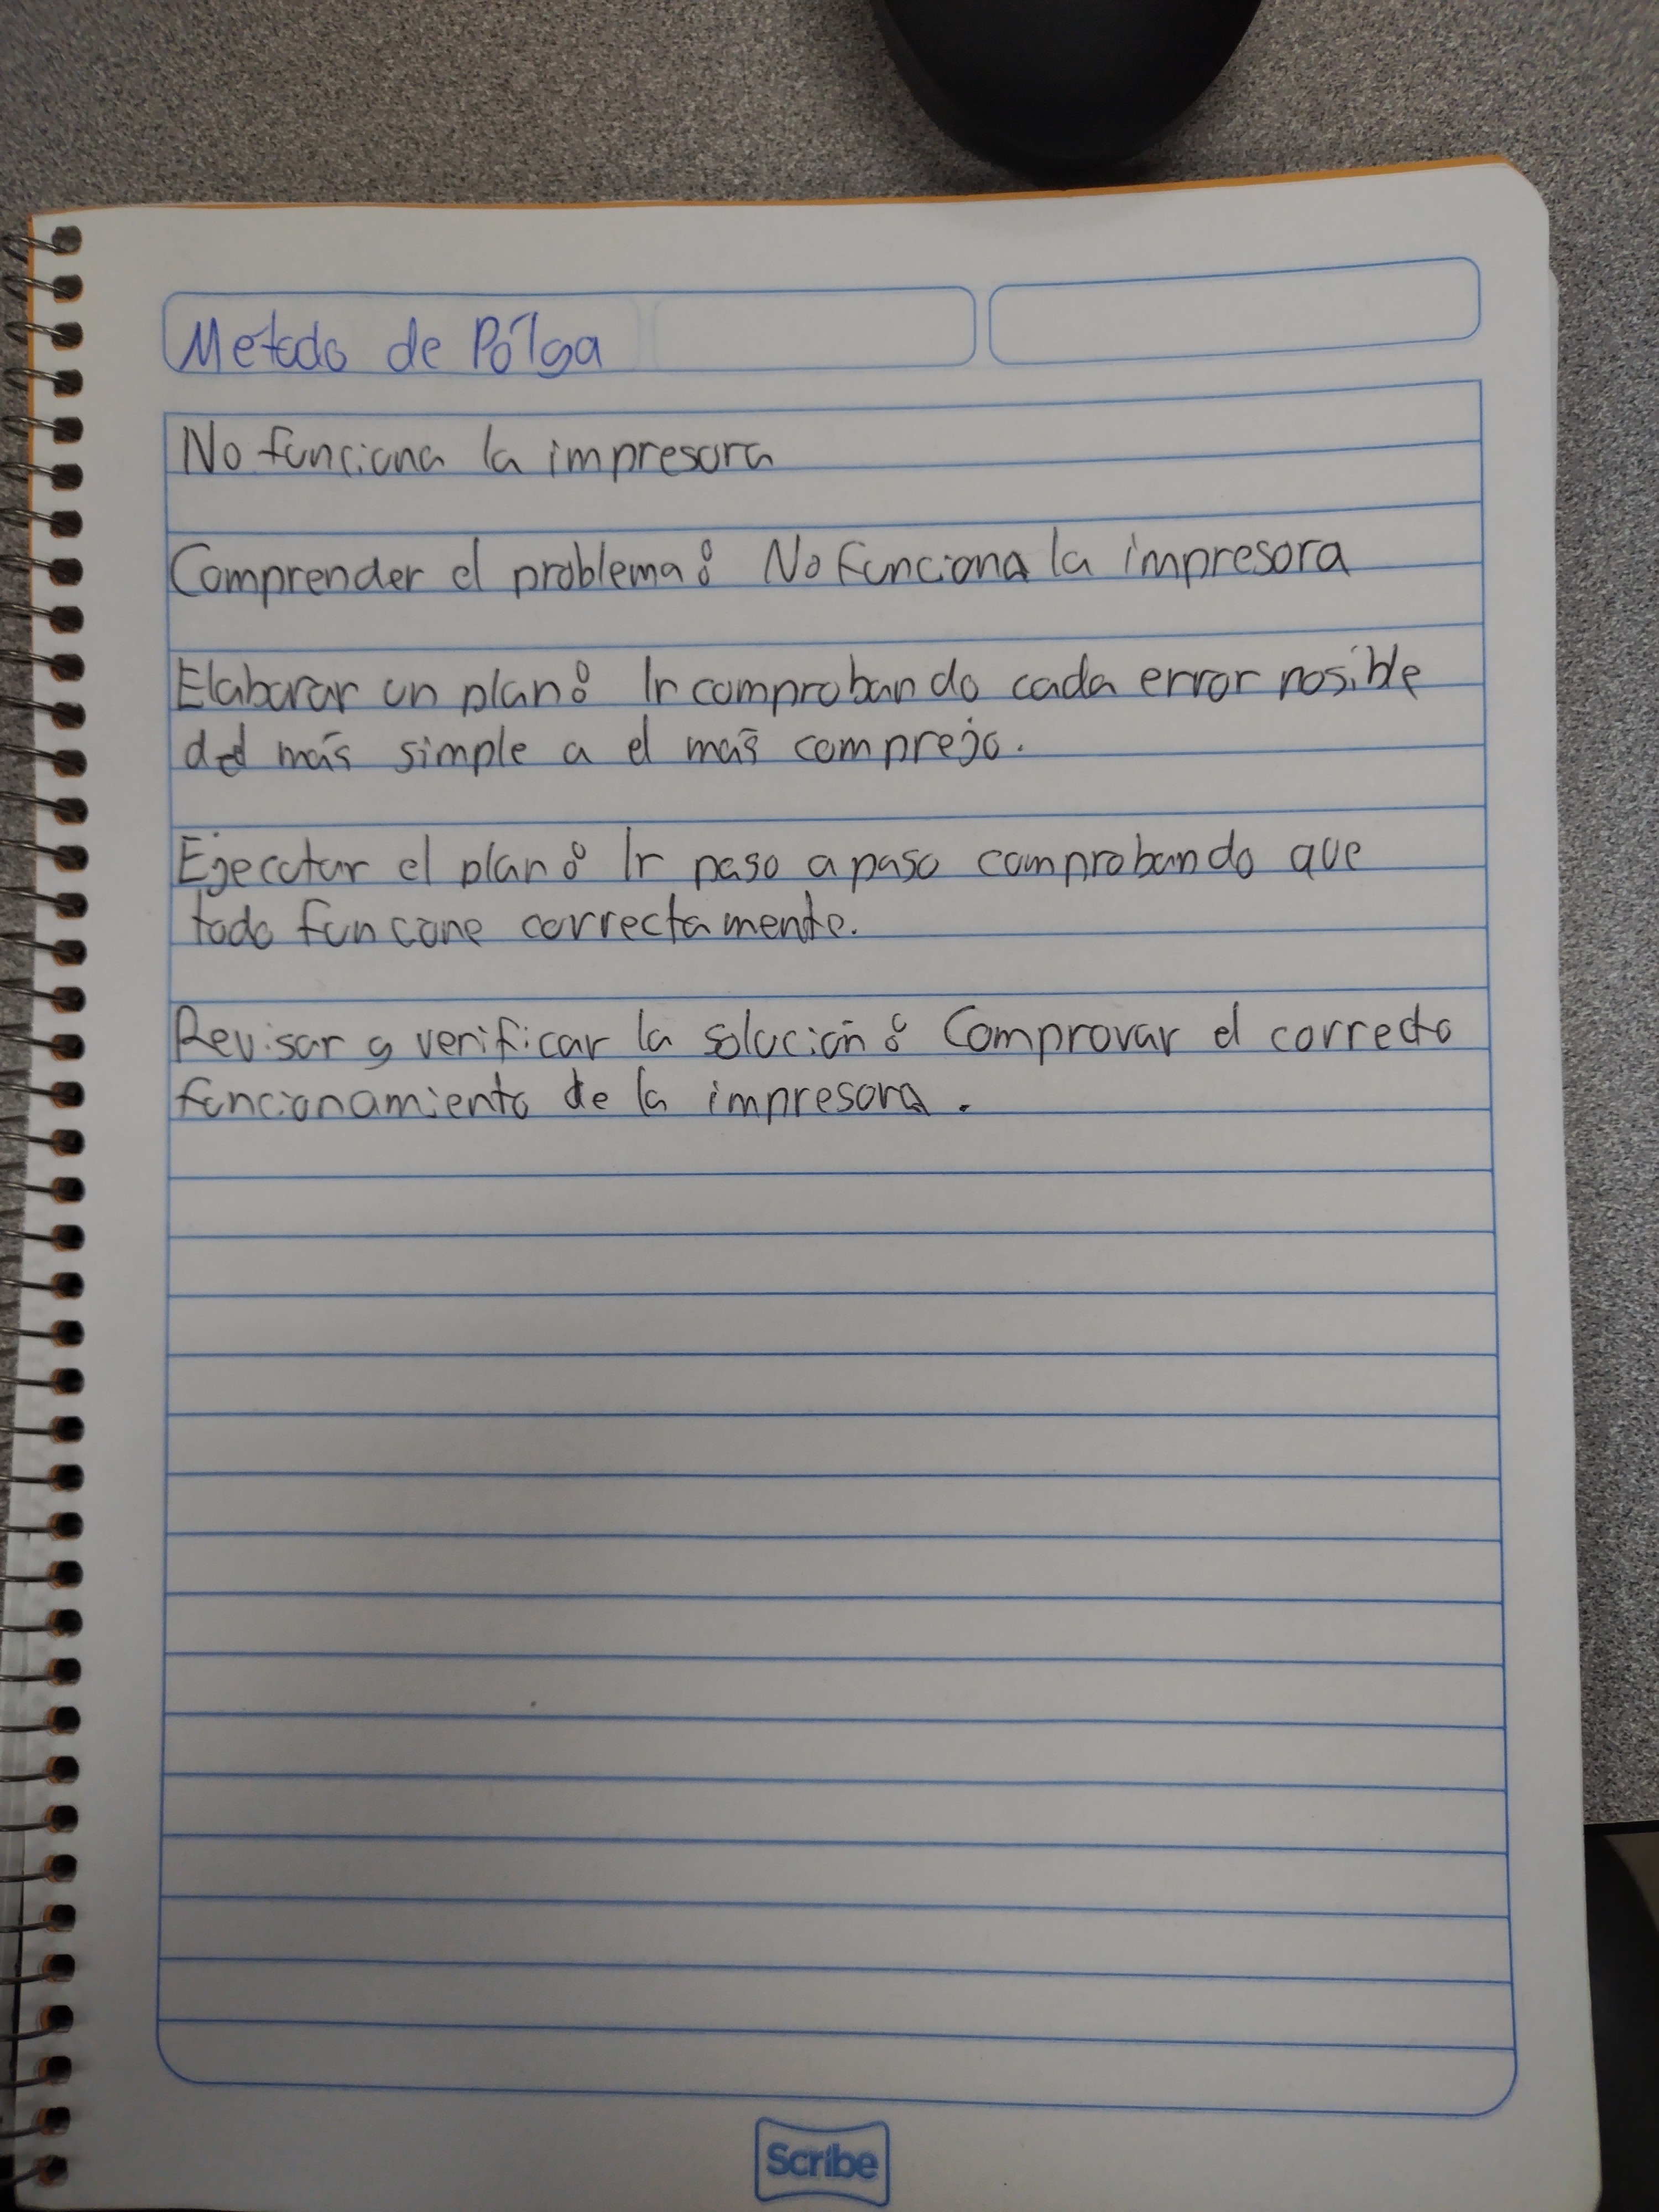 Metodo de Pólya
No funciona la impresora
Comprender el problema: No funciona la impresora
Elaborar un plan: Ir comprobando cada error posible
del más simple a el más comprejo.
Ejecutar el plan: Ir paso a paso comprobando que
todo funcone correctamente.
Revisar y verificar la solución: Comprovar el correcto
funcionamiento de la impresora.
Scribe